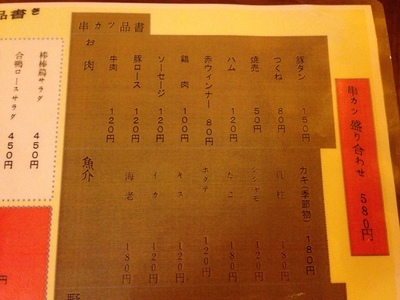 品書き
棒棒鶏サラダ 450円
合鴨ロースサラダ 450円
串カツ 品書
お肉
牛肉 120円
豚ロース 120円
ソーセージ 120円
鶏肉 100円
赤ウィンナー 80円
ハム 120円
焼売 50円
つくね 80円
豚タン 150円
魚介
海老 180円
イカ 120円
キス 120円
ホタテ 120円
たこ 120円
シシャモ 120円
貝柱 180円
カキ(季節物) 180円
野
串カツ盛り合わせ 580円
円